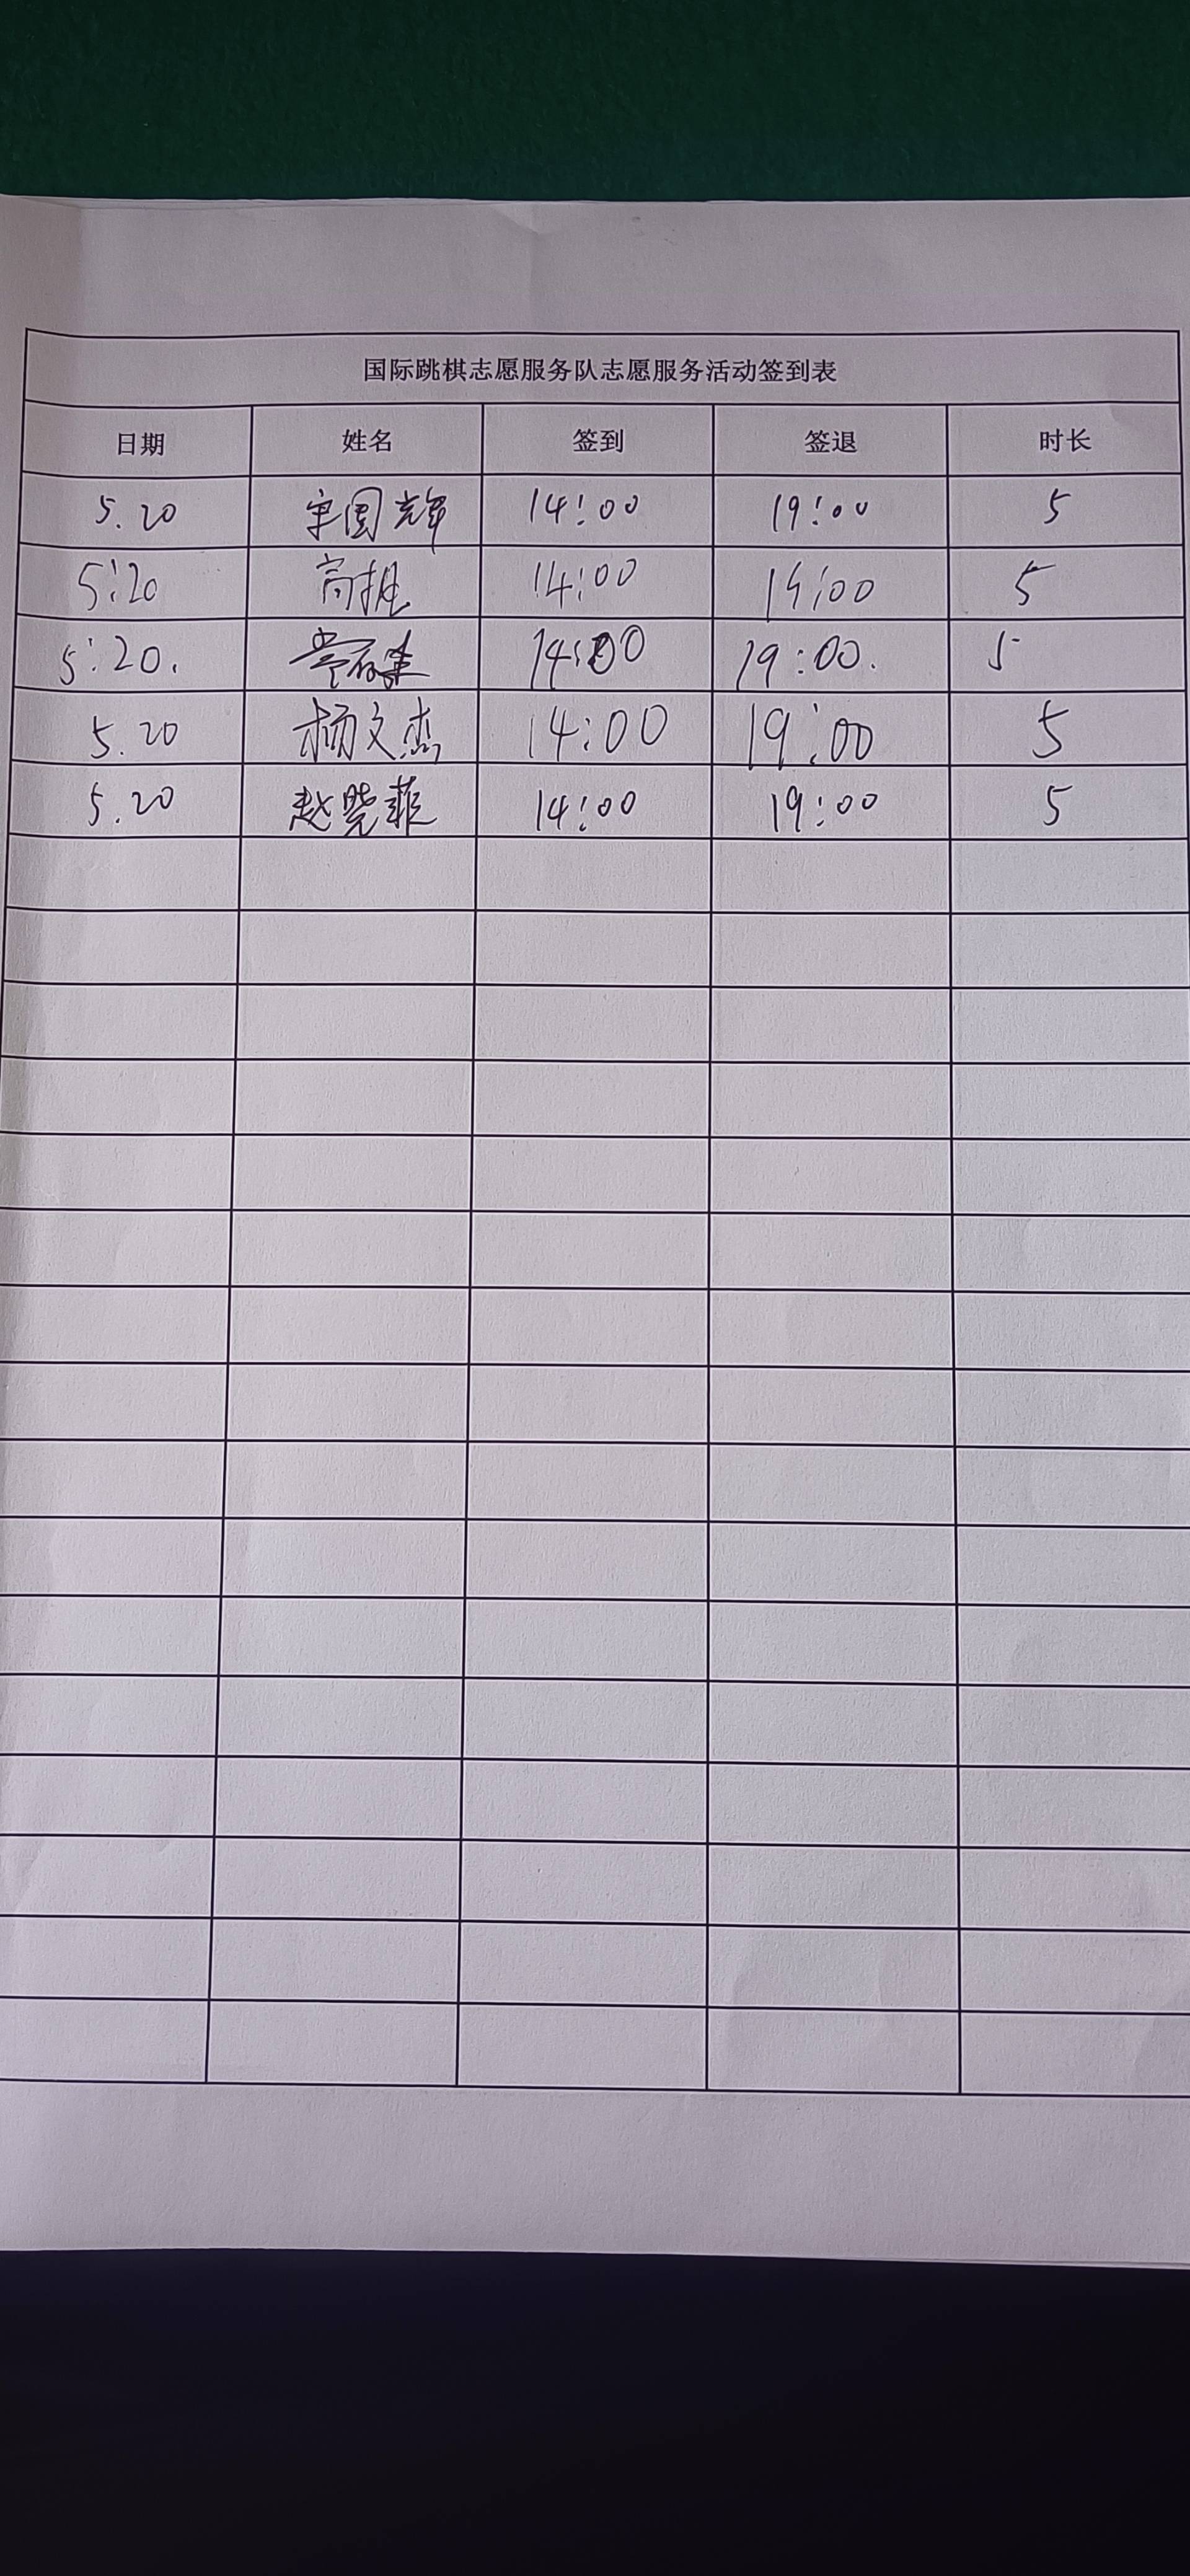 国际跳棋志愿服务队志愿服务活动签到表
日期 姓名 签到 签退 时长
5.20 国辉 14:00 19:00 5
5:20 高 14:00 19:00 5
5:20. 14:00 19:00. 5
5.20 杨文杰 14:00 19:00 5
5.20 赵晓菲 14:00 19:00 5